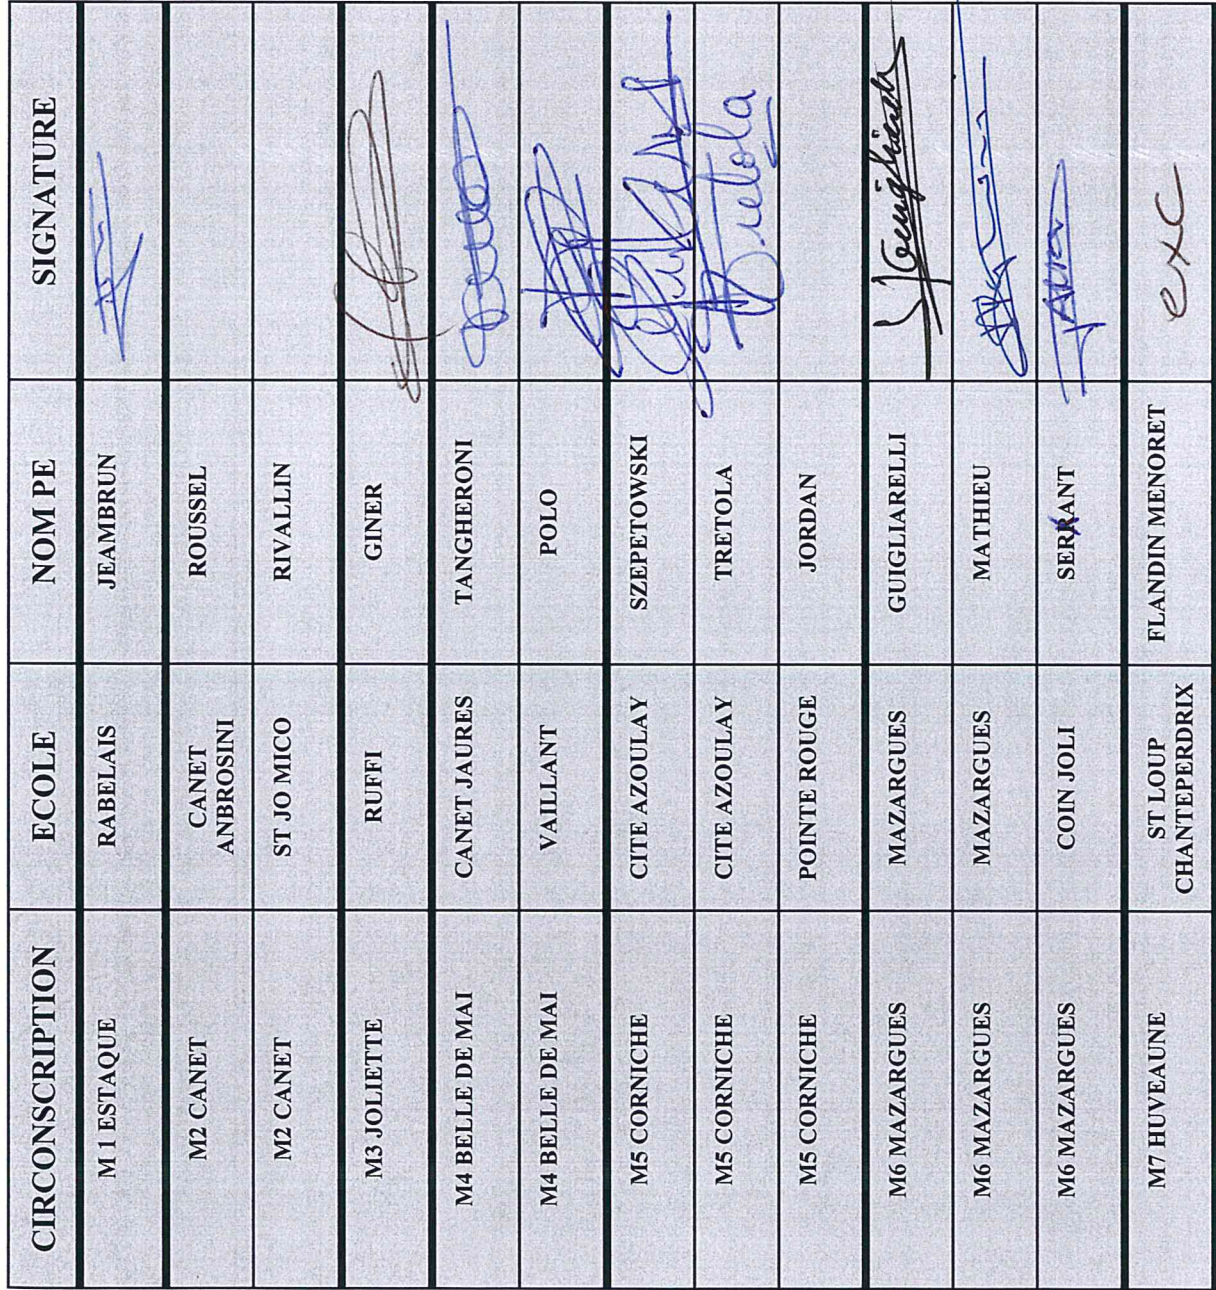 CIRCONSCRIPTION ECOLE NOM PE SIGNATURE
M 1 ESTAQUE RABELAIS JEAMBRUN
M2 CANET CANET ANBROSINI ROUSSEL
M2 CANET ST JO MICO RIVALLIN
M3 JOLIETTE RUFFI GINER
M4 BELLE DE MAI CANET JAURES TANGHERONI
M4 BELLE DE MAI VAILLANT POLO
M5 CORNICHE CITE AZOULAY SZEPETOWSKI
M5 CORNICHE CITE AZOULAY TRETOLA Tretola
M5 CORNICHE POINTE ROUGE JORDAN
M6 MAZARGUES MAZARGUES GUIGLIARELLI
M6 MAZARGUES MAZARGUES MATHIEU
M6 MAZARGUES COIN JOLI SERRANT
M7 HUVEAUNE ST LOUP CHANTEPERDRIX FLANDIN MENORET exc